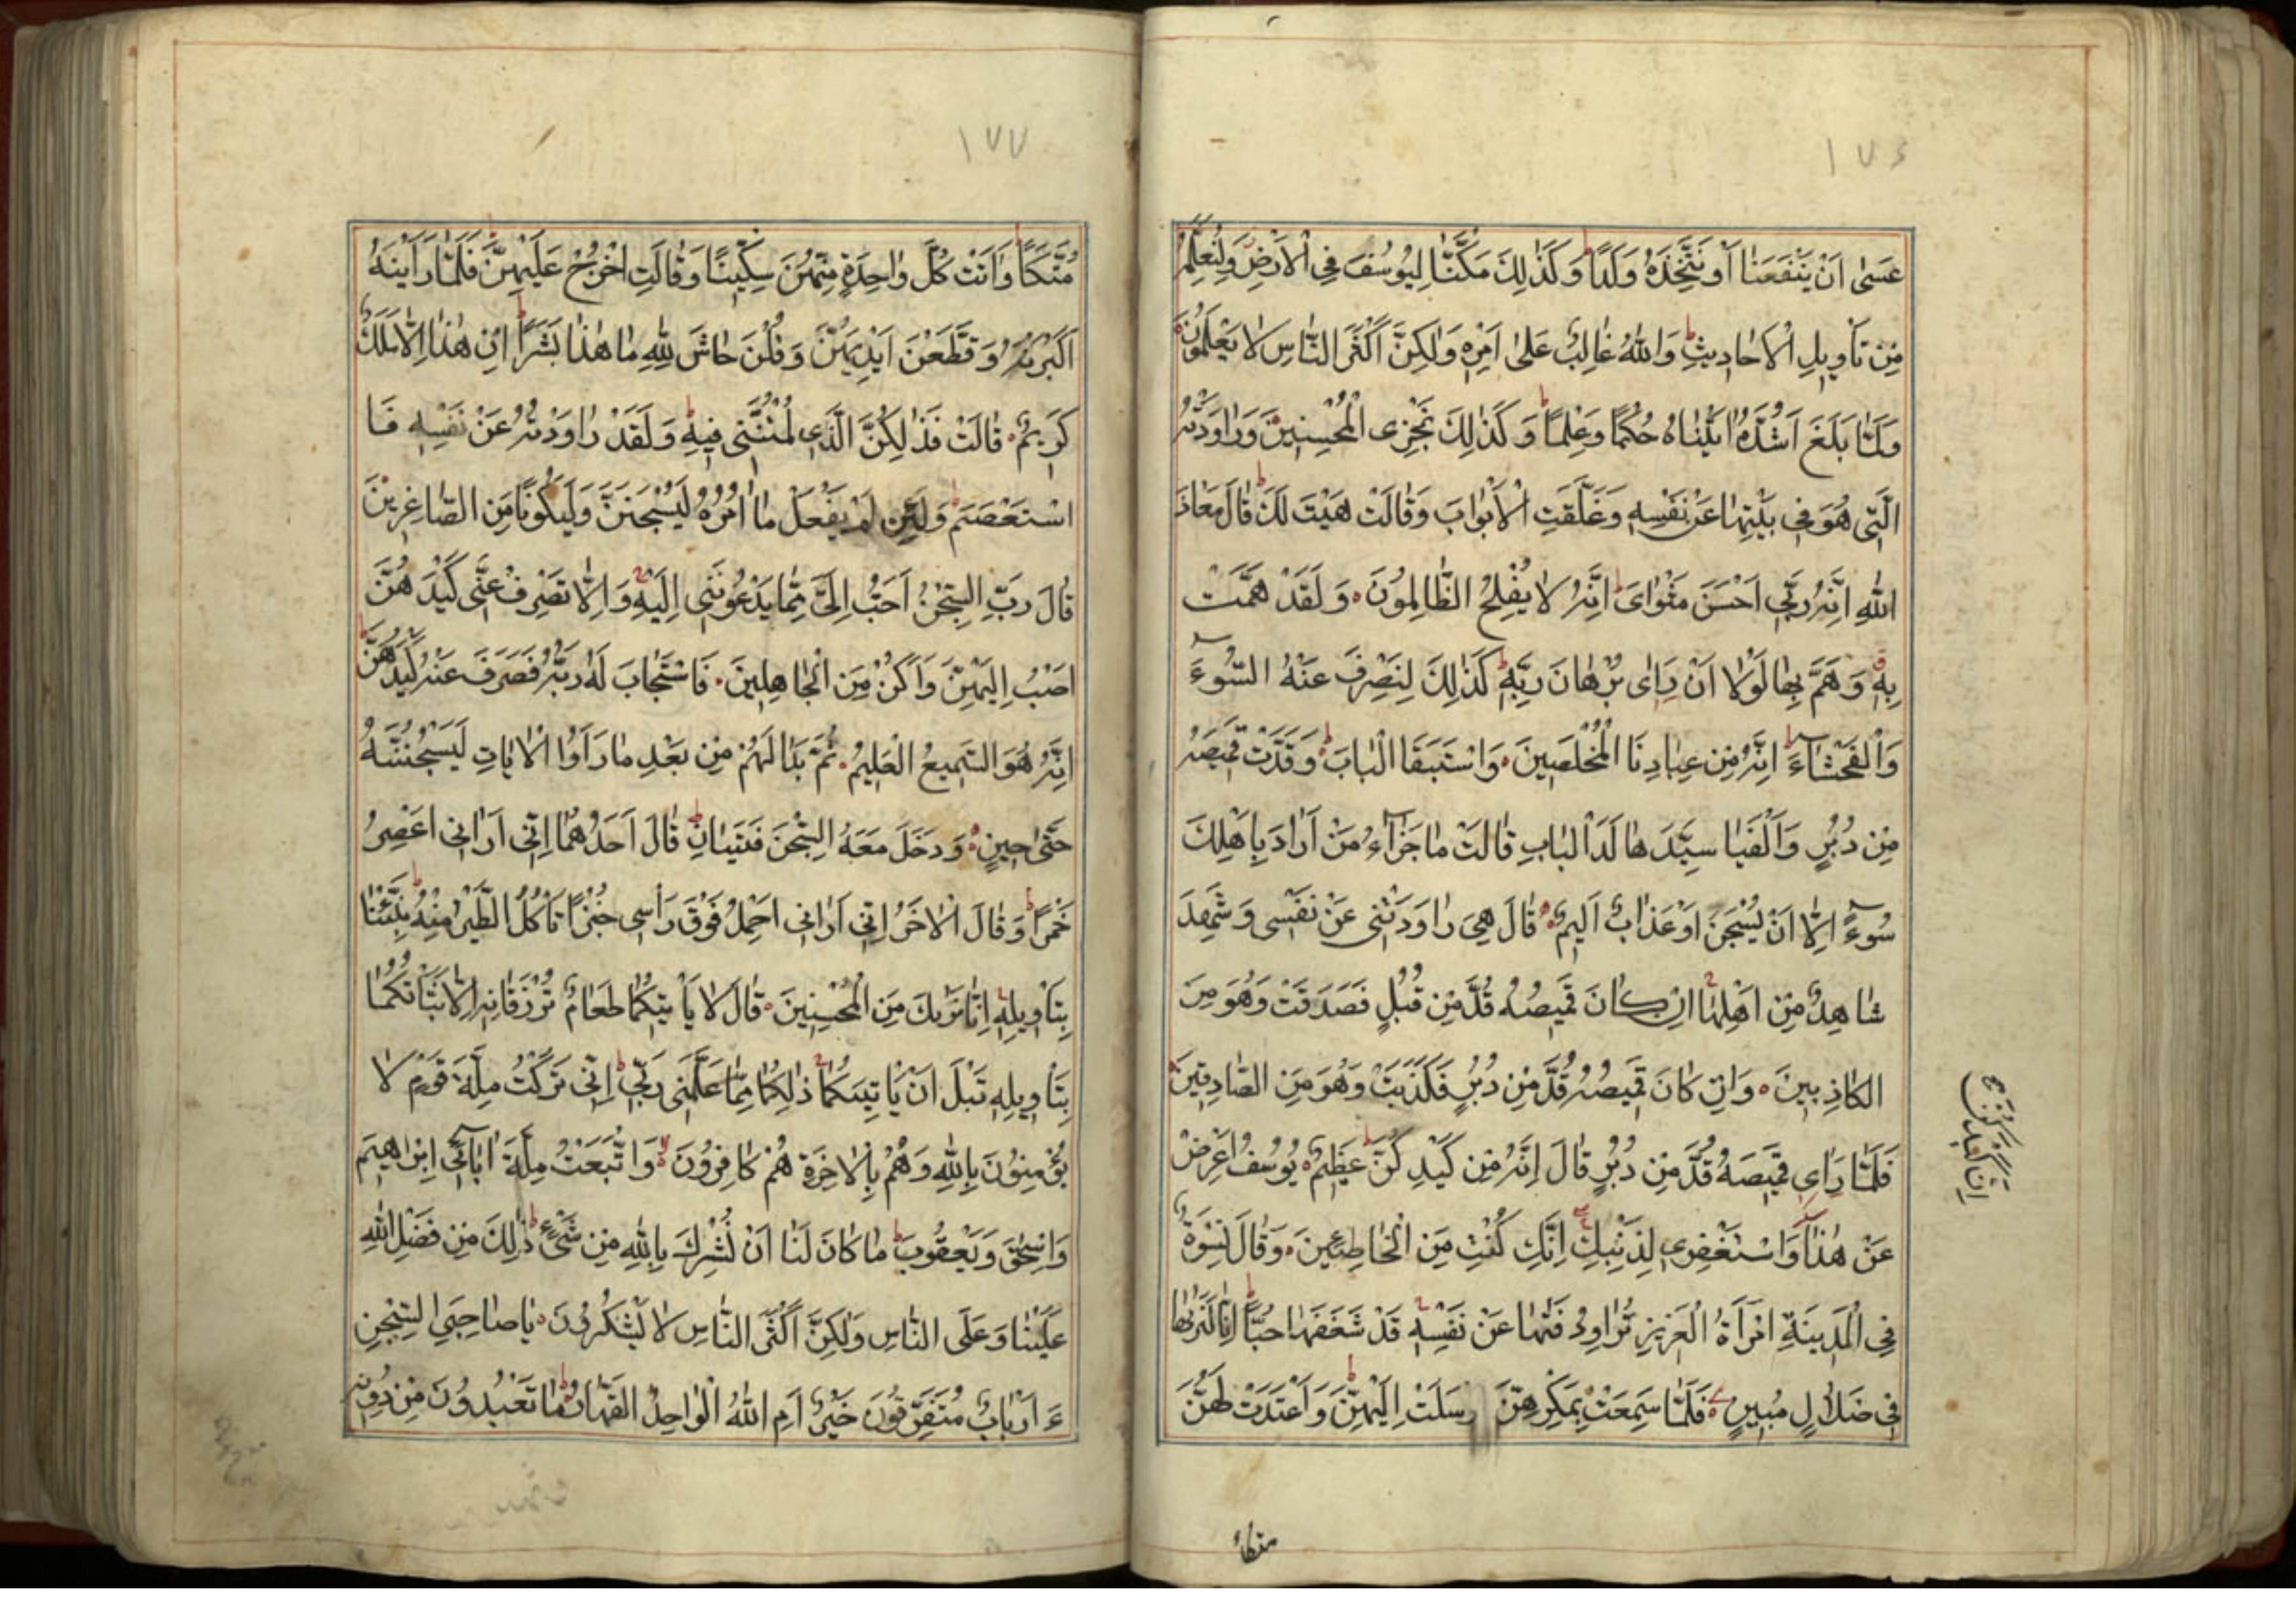 ١٧۶
عَسٰى اَنْ يَنْفَعَنٰا اَوْ نَتَّخِذَهُ وَلَدًا وَكَذٰلِكَ مَكَّنّٰا لِيُوسُفَ فِى الْاَرْضِ وَلِنُعَلِّمَهُ
مِنْ تَأْوِيلِ الْاَحٰادِيثِ وَاللّٰهُ غٰالِبٌ عَلىٰ اَمْرِهِ وَلٰكِنَّ اَكْثَرَ النّٰاسِ لاٰ يَعْلَمُونَ
وَلَمّٰا بَلَغَ اَشُدَّهُ اٰتَيْنٰاهُ حُكْمًا وَعِلْمًا وَكَذٰلِكَ نَجْزِى الْمُحْسِنِينَ وَرٰاوَدَتْهُ
الَّتِى هُوَ فِى بَيْتِهٰا عَنْ نَفْسِهِ وَغَلَّقَتِ الْاَبْوٰابَ وَقٰالَتْ هَيْتَ لَكَ قٰالَ مَعٰاذَ
اللّٰهِ اِنَّهُ رَبِّى اَحْسَنَ مَثْوٰاىَ اِنَّهُ لاٰ يُفْلِحُ الظّٰالِمُونَ وَلَقَدْ هَمَّتْ
بِهِ وَهَمَّ بِهٰا لَوْلاٰ اَنْ رَاٰى بُرْهٰانَ رَبِّهِ كَذٰلِكَ لِنَصْرِفَ عَنْهُ السُّوۤءَ
وَالْفَحْشٰاۤءَ اِنَّهُ مِنْ عِبٰادِنَا الْمُخْلَصِينَ وَاسْتَبَقَا الْبٰابَ وَقَدَّتْ قَمِيصَهُ
مِنْ دُبُرٍ وَاَلْفَيٰا سَيِّدَهٰا لَدَا الْبٰابِ قٰالَتْ مٰا جَزٰاۤءُ مَنْ اَرٰادَ بِاَهْلِكَ
سُوۤءًا اِلاّٰ اَنْ يُسْجَنَ اَوْ عَذٰابٌ اَلِيمٌ قٰالَ هِىَ رٰاوَدَتْنِى عَنْ نَفْسِى وَشَهِدَ
شٰاهِدٌ مِنْ اَهْلِهٰا اِنْ كٰانَ قَمِيصُهُ قُدَّ مِنْ قُبُلٍ فَصَدَقَتْ وَهُوَ مِنَ
الكٰاذِبِينَ وَاِنْ كٰانَ قَمِيصُهُ قُدَّ مِنْ دُبُرٍ فَكَذَبَتْ وَهُوَ مِنَ الصّٰادِقِينَ
فَلَمّٰا رَاٰى قَمِيصَهُ قُدَّ مِنْ دُبُرٍ قٰالَ اِنَّهُ مِنْ كَيْدِكُنَّ عَظِيمٌ يُوسُفُ اَعْرِضْ
عَنْ هٰذٰا وَاسْتَغْفِرِى لِذَنْبِكِ اِنَّكِ كُنْتِ مِنَ الْخٰاطِئِينَ وَقٰالَ نِسْوَةٌ
فِى الْمَدِينَةِ امْرَأَةُ الْعَزِيزِ تُرٰاوِدُ فَتٰهٰا عَنْ نَفْسِهِ قَدْ شَغَفَهٰا حُبًّا اِنّٰا لَنَرٰيهٰا
فِى ضَلاٰلٍ مُبِينٍ فَلَمّٰا سَمِعَتْ بِمَكْرِهِنَّ رسَلَتْ اِلَيْهِنَّ وَاَعْتَدَتْ لَهُنَّ
اِنَّ كَيْدَكُنَّ
متكأ
١٧٧
مُتَّكَأً وَاٰتَتْ كُلَّ وٰاحِدَةٍ مِنْهُنَّ سِكِّينًا وَقٰالَتِ اخْرُجْ عَلَيْهِنَّ فَلَمّٰا رَاَيْنَهُ
اَكْبَرْنَهُ وَقَطَّعْنَ اَيْدِيَهُنَّ وَقُلْنَ حٰاشَ لِلّٰهِ مٰا هٰذٰا بَشَرًا اِنْ هٰذٰا اِلاّٰ مَلَكٌ
كَرِيمٌ قٰالَتْ فَذٰلِكُنَّ الَّذِى لُمْتُنَّنِى فِيهِ وَلَقَدْ رٰاوَدْتُهُ عَنْ نَفْسِهِ فَا
اسْتَعْصَمَ وَلَئِنْ لَمْ يَفْعَلْ مٰا اٰمُرُهُ لَيُسْجَنَنَّ وَلَيَكُونًا مِنَ الصّٰاغِرِينَ
قٰالَ رَبِّ السِّجْنُ اَحَبُّ اِلَىَّ مِمّٰا يَدْعُونَنِى اِلَيْهِ وَاِلاّٰ تَصْرِفْ عَنِّى كَيْدَهُنَّ
اَصْبُ اِلَيْهِنَّ وَاَكُنْ مِنَ الْجٰاهِلِينَ فَاسْتَجٰابَ لَهُ رَبُّهُ فَصَرَفَ عَنْهُ كَيْدَهُنَّ
اِنَّهُ هُوَ السَّمِيعُ الْعَلِيمُ ثُمَّ بَدٰا لَهُمْ مِنْ بَعْدِ مٰا رَاَوُا الْاٰيٰاتِ لَيَسْجُنُنَّهُ
حَتّٰى حِينٍ وَدَخَلَ مَعَهُ السِّجْنَ فَتَيٰانِ قٰالَ اَحَدُهُمٰا اِنِّى اَرٰانِى اَعْصِرُ
خَمْرًا وَقٰالَ الْاٰخَرُ اِنِّى اَرٰانِى اَحْمِلُ فَوْقَ رَأْسِى خُبْزًا تَأْكُلُ الطَّيْرُ مِنْهُ نَبِّئْنٰا
بِتَأْوِيلِهِ اِنّٰا نَرٰيكَ مِنَ الْمُحْسِنِينَ قٰالَ لاٰ يَأْتِيكُمٰا طَعٰامٌ تُرْزَقٰانِهِ اِلاّٰ نَبَّأْتُكُمٰا
بِتَأْوِيلِهِ قَبْلَ اَنْ يَأْتِيَكُمٰا ذٰلِكُمٰا مِمّٰا عَلَّمَنِى رَبِّى اِنِّى تَرَكْتُ مِلَّةَ قَوْمٍ لاٰ
يُؤْمِنُونَ بِاللّٰهِ وَهُمْ بِالْاٰخِرَةِ هُمْ كٰافِرُونَ وَاتَّبَعْتُ مِلَّةَ اٰبٰاۤئِى اِبْرٰاهِيمَ
وَاِسْحٰقَ وَيَعْقُوبَ مٰا كٰانَ لَنٰا اَنْ نُشْرِكَ بِاللّٰهِ مِنْ شَىْءٍ ذٰلِكَ مِنْ فَضْلِ اللّٰهِ
عَلَيْنٰا وَعَلَى النّٰاسِ وَلٰكِنَّ اَكْثَرَ النّٰاسِ لاٰ يَشْكُرُونَ يٰا صٰاحِبَىِ السِّجْنِ
ءَ اَرْبٰابٌ مُتَفَرِّقُونَ خَيْرٌ اَمِ اللّٰهُ الْوٰاحِدُ الْقَهّٰارُ مٰا تَعْبُدُونَ مِنْ دُونِهِ